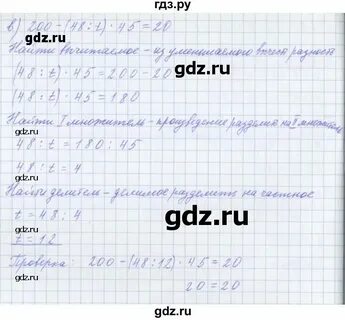 гдз.ру
в) 200 - (48 : t) · 45 = 20
Найти вычитаемое - из уменьшаемого вычесть разность
(48 : t) · 45 = 200 - 20
(48 : t) · 45 = 180
Найти I множитель - произведение разделить на II множитель
48 : t = 180 : 45
48 : t = 4
Найти делитель - делимое разделить на частное
t = 48 : 4
t = 12
Проверка: 200 - (48 : 12) · 45 = 20
20 = 20
gdz.ru
gdz.ru
gdz.ru
gdz.ru
gdz.ru